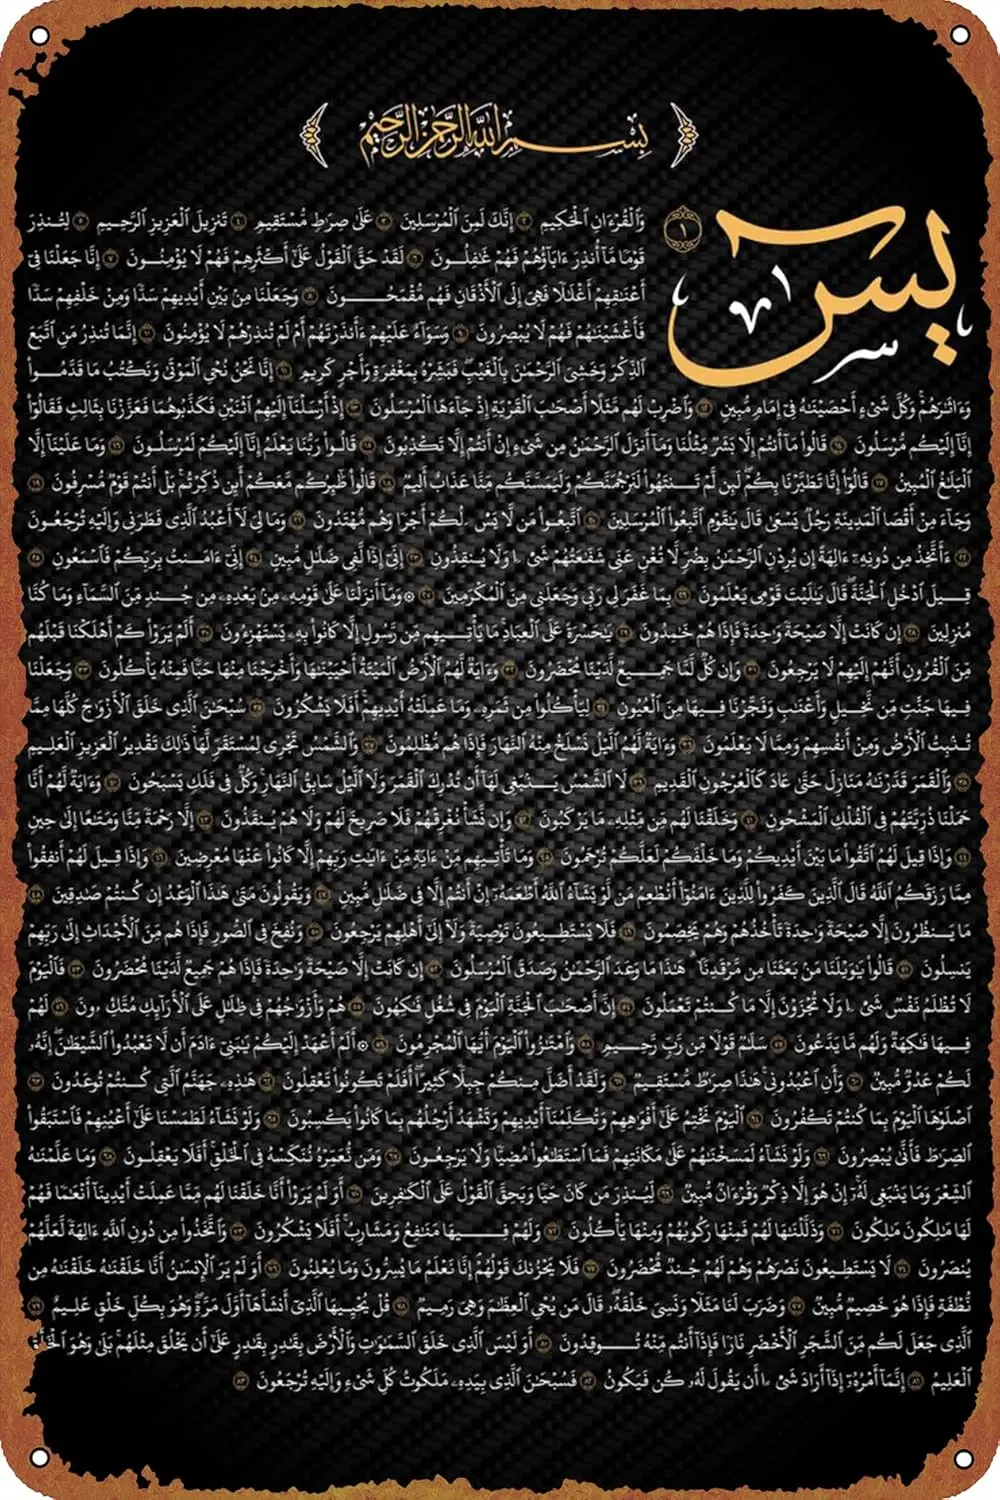 بِسْمِ ٱللَّهِ ٱلرَّحْمَٰنِ ٱلرَّحِيمِ
يسٓ ١
وَٱلْقُرْءَانِ ٱلْحَكِيمِ ٢ إِنَّكَ لَمِنَ ٱلْمُرْسَلِينَ ٣ عَلَىٰ صِرَٰطٍ مُّسْتَقِيمٍ ٤ تَنزِيلَ ٱلْعَزِيزِ ٱلرَّحِيمِ ٥ لِتُنذِرَ
قَوْمًا مَّآ أُنذِرَ ءَابَآؤُهُمْ فَهُمْ غَٰفِلُونَ ٦ لَقَدْ حَقَّ ٱلْقَوْلُ عَلَىٰٓ أَكْثَرِهِمْ فَهُمْ لَا يُؤْمِنُونَ ٧ إِنَّا جَعَلْنَا فِىٓ
أَعْنَٰقِهِمْ أَغْلَٰلًا فَهِىَ إِلَى ٱلْأَذْقَانِ فَهُم مُّقْمَحُونَ ٨ وَجَعَلْنَا مِنۢ بَيْنِ أَيْدِيهِمْ سَدًّا وَمِنْ خَلْفِهِمْ سَدًّا
فَأَغْشَيْنَٰهُمْ فَهُمْ لَا يُبْصِرُونَ ٩ وَسَوَآءٌ عَلَيْهِمْ ءَأَنذَرْتَهُمْ أَمْ لَمْ تُنذِرْهُمْ لَا يُؤْمِنُونَ ١٠ إِنَّمَا تُنذِرُ مَنِ ٱتَّبَعَ
ٱلذِّكْرَ وَخَشِىَ ٱلرَّحْمَٰنَ بِٱلْغَيْبِ ۖ فَبَشِّرْهُ بِمَغْفِرَةٍ وَأَجْرٍ كَرِيمٍ ١١ إِنَّا نَحْنُ نُحْىِ ٱلْمَوْتَىٰ وَنَكْتُبُ مَا قَدَّمُوا۟
وَءَاثَٰرَهُمْ ۚ وَكُلَّ شَىْءٍ أَحْصَيْنَٰهُ فِىٓ إِمَامٍ مُّبِينٍ ١٢ وَٱضْرِبْ لَهُم مَّثَلًا أَصْحَٰبَ ٱلْقَرْيَةِ إِذْ جَآءَهَا ٱلْمُرْسَلُونَ ١٣ إِذْ أَرْسَلْنَآ إِلَيْهِمُ ٱثْنَيْنِ فَكَذَّبُوهُمَا فَعَزَّزْنَا بِثَالِثٍ فَقَالُوٓا۟
إِنَّآ إِلَيْكُم مُّرْسَلُونَ ١٤ قَالُوا۟ مَآ أَنتُمْ إِلَّا بَشَرٌ مِّثْلُنَا وَمَآ أَنزَلَ ٱلرَّحْمَٰنُ مِن شَىْءٍ إِنْ أَنتُمْ إِلَّا تَكْذِبُونَ ١٥ قَالُوا۟ رَبُّنَا يَعْلَمُ إِنَّآ إِلَيْكُمْ لَمُرْسَلُونَ ١٦ وَمَا عَلَيْنَآ إِلَّا
ٱلْبَلَٰغُ ٱلْمُبِينُ ١٧ قَالُوٓا۟ إِنَّا تَطَيَّرْنَا بِكُمْ ۖ لَئِن لَّمْ تَنتَهُوا۟ لَنَرْجُمَنَّكُمْ وَلَيَمَسَّنَّكُم مِّنَّا عَذَابٌ أَلِيمٌ ١٨ قَالُوا۟ طَٰٓئِرُكُم مَّعَكُمْ ۚ أَئِن ذُكِّرْتُم ۚ بَلْ أَنتُمْ قَوْمٌ مُّسْرِفُونَ ١٩
وَجَآءَ مِنْ أَقْصَا ٱلْمَدِينَةِ رَجُلٌ يَسْعَىٰ قَالَ يَٰقَوْمِ ٱتَّبِعُوا۟ ٱلْمُرْسَلِينَ ٢٠ ٱتَّبِعُوا۟ مَن لَّا يَسْـَٔلُكُمْ أَجْرًا وَهُم مُّهْتَدُونَ ٢١ وَمَا لِىَ لَآ أَعْبُدُ ٱلَّذِى فَطَرَنِى وَإِلَيْهِ تُرْجَعُونَ
٢٢ ءَأَتَّخِذُ مِن دُونِهِۦٓ ءَالِهَةً إِن يُرِدْنِ ٱلرَّحْمَٰنُ بِضُرٍّ لَّا تُغْنِ عَنِّى شَفَٰعَتُهُمْ شَيْـًٔا وَلَا يُنقِذُونِ ٢٣ إِنِّىٓ إِذًا لَّفِى ضَلَٰلٍ مُّبِينٍ ٢٤ إِنِّىٓ ءَامَنتُ بِرَبِّكُمْ فَٱسْمَعُونِ ٢٥
قِيلَ ٱدْخُلِ ٱلْجَنَّةَ ۖ قَالَ يَٰلَيْتَ قَوْمِى يَعْلَمُونَ ٢٦ بِمَا غَفَرَ لِى رَبِّى وَجَعَلَنِى مِنَ ٱلْمُكْرَمِينَ ٢٧ ۞ وَمَآ أَنزَلْنَا عَلَىٰ قَوْمِهِۦ مِنۢ بَعْدِهِۦ مِن جُندٍ مِّنَ ٱلسَّمَآءِ وَمَا كُنَّا
مُنزِلِينَ ٢٨ إِن كَانَتْ إِلَّا صَيْحَةً وَٰحِدَةً فَإِذَا هُمْ خَٰمِدُونَ ٢٩ يَٰحَسْرَةً عَلَى ٱلْعِبَادِ ۚ مَا يَأْتِيهِم مِّن رَّسُولٍ إِلَّا كَانُوا۟ بِهِۦ يَسْتَهْزِءُونَ ٣٠ أَلَمْ يَرَوْا۟ كَمْ أَهْلَكْنَا قَبْلَهُم
مِّنَ ٱلْقُرُونِ أَنَّهُمْ إِلَيْهِمْ لَا يَرْجِعُونَ ٣١ وَإِن كُلٌّ لَّمَّا جَمِيعٌ لَّدَيْنَا مُحْضَرُونَ ٣٢ وَءَايَةٌ لَّهُمُ ٱلْأَرْضُ ٱلْمَيْتَةُ أَحْيَيْنَٰهَا وَأَخْرَجْنَا مِنْهَا حَبًّا فَمِنْهُ يَأْكُلُونَ ٣٣ وَجَعَلْنَا
فِيهَا جَنَّٰتٍ مِّن نَّخِيلٍ وَأَعْنَٰبٍ وَفَجَّرْنَا فِيهَا مِنَ ٱلْعُيُونِ ٣٤ لِيَأْكُلُوا۟ مِن ثَمَرِهِۦ وَمَا عَمِلَتْهُ أَيْدِيهِمْ ۖ أَفَلَا يَشْكُرُونَ ٣٥ سُبْحَٰنَ ٱلَّذِى خَلَقَ ٱلْأَزْوَٰجَ كُلَّهَا مِمَّا
تُنۢبِتُ ٱلْأَرْضُ وَمِنْ أَنفُسِهِمْ وَمِمَّا لَا يَعْلَمُونَ ٣٦ وَءَايَةٌ لَّهُمُ ٱلَّيْلُ نَسْلَخُ مِنْهُ ٱلنَّهَارَ فَإِذَا هُم مُّظْلِمُونَ ٣٧ وَٱلشَّمْسُ تَجْرِى لِمُسْتَقَرٍّ لَّهَا ۚ ذَٰلِكَ تَقْدِيرُ ٱلْعَزِيزِ ٱلْعَلِيمِ
٣٨ وَٱلْقَمَرَ قَدَّرْنَٰهُ مَنَازِلَ حَتَّىٰ عَادَ كَٱلْعُرْجُونِ ٱلْقَدِيمِ ٣٩ لَا ٱلشَّمْسُ يَنۢبَغِى لَهَآ أَن تُدْرِكَ ٱلْقَمَرَ وَلَا ٱلَّيْلُ سَابِقُ ٱلنَّهَارِ ۚ وَكُلٌّ فِى فَلَكٍ يَسْبَحُونَ ٤٠ وَءَايَةٌ لَّهُمْ أَنَّا
حَمَلْنَا ذُرِّيَّتَهُمْ فِى ٱلْفُلْكِ ٱلْمَشْحُونِ ٤١ وَخَلَقْنَا لَهُم مِّن مِّثْلِهِۦ مَا يَرْكَبُونَ ٤٢ وَإِن نَّشَأْ نُغْرِقْهُمْ فَلَا صَرِيخَ لَهُمْ وَلَا هُمْ يُنقَذُونَ ٤٣ إِلَّا رَحْمَةً مِّنَّا وَمَتَٰعًا إِلَىٰ حِينٍ
٤٤ وَإِذَا قِيلَ لَهُمُ ٱتَّقُوا۟ مَا بَيْنَ أَيْدِيكُمْ وَمَا خَلْفَكُمْ لَعَلَّكُمْ تُرْحَمُونَ ٤٥ وَمَا تَأْتِيهِم مِّنْ ءَايَةٍ مِّنْ ءَايَٰتِ رَبِّهِمْ إِلَّا كَانُوا۟ عَنْهَا مُعْرِضِينَ ٤٦ وَإِذَا قِيلَ لَهُمْ أَنفِقُوا۟
مِمَّا رَزَقَكُمُ ٱللَّهُ قَالَ ٱلَّذِينَ كَفَرُوا۟ لِلَّذِينَ ءَامَنُوٓا۟ أَنُطْعِمُ مَن لَّوْ يَشَآءُ ٱللَّهُ أَطْعَمَهُۥٓ إِنْ أَنتُمْ إِلَّا فِى ضَلَٰلٍ مُّبِينٍ ٤٧ وَيَقُولُونَ مَتَىٰ هَٰذَا ٱلْوَعْدُ إِن كُنتُمْ صَٰدِقِينَ ٤٨
مَا يَنظُرُونَ إِلَّا صَيْحَةً وَٰحِدَةً تَأْخُذُهُمْ وَهُمْ يَخِصِّمُونَ ٤٩ فَلَا يَسْتَطِيعُونَ تَوْصِيَةً وَلَآ إِلَىٰٓ أَهْلِهِمْ يَرْجِعُونَ ٥٠ وَنُفِخَ فِى ٱلصُّورِ فَإِذَا هُم مِّنَ ٱلْأَجْدَاثِ إِلَىٰ رَبِّهِمْ
يَنسِلُونَ ٥١ قَالُوا۟ يَٰوَيْلَنَا مَنۢ بَعَثَنَا مِن مَّرْقَدِنَا ۜ ۗ هَٰذَا مَا وَعَدَ ٱلرَّحْمَٰنُ وَصَدَقَ ٱلْمُرْسَلُونَ ٥٢ إِن كَانَتْ إِلَّا صَيْحَةً وَٰحِدَةً فَإِذَا هُمْ جَمِيعٌ لَّدَيْنَا مُحْضَرُونَ ٥٣ فَٱلْيَوْمَ
لَا تُظْلَمُ نَفْسٌ شَيْـًٔا وَلَا تُجْزَوْنَ إِلَّا مَا كُنتُمْ تَعْمَلُونَ ٥٤ إِنَّ أَصْحَٰبَ ٱلْجَنَّةِ ٱلْيَوْمَ فِى شُغُلٍ فَٰكِهُونَ ٥٥ هُمْ وَأَزْوَٰجُهُمْ فِى ظِلَٰلٍ عَلَى ٱلْأَرَآئِكِ مُتَّكِـُٔونَ ٥٦ لَهُمْ
فِيهَا فَٰكِهَةٌ وَلَهُم مَّا يَدَّعُونَ ٥٧ سَلَٰمٌ قَوْلًا مِّن رَّبٍّ رَّحِيمٍ ٥٨ وَٱمْتَٰزُوا۟ ٱلْيَوْمَ أَيُّهَا ٱلْمُجْرِمُونَ ٥٩ ۞ أَلَمْ أَعْهَدْ إِلَيْكُمْ يَٰبَنِىٓ ءَادَمَ أَن لَّا تَعْبُدُوا۟ ٱلشَّيْطَٰنَ ۖ إِنَّهُۥ
لَكُمْ عَدُوٌّ مُّبِينٌ ٦٠ وَأَنِ ٱعْبُدُونِى ۚ هَٰذَا صِرَٰطٌ مُّسْتَقِيمٌ ٦١ وَلَقَدْ أَضَلَّ مِنكُمْ جِبِلًّا كَثِيرًا ۖ أَفَلَمْ تَكُونُوا۟ تَعْقِلُونَ ٦٢ هَٰذِهِۦ جَهَنَّمُ ٱلَّتِى كُنتُمْ تُوعَدُونَ ٦٣
ٱصْلَوْهَا ٱلْيَوْمَ بِمَا كُنتُمْ تَكْفُرُونَ ٦٤ ٱلْيَوْمَ نَخْتِمُ عَلَىٰٓ أَفْوَٰهِهِمْ وَتُكَلِّمُنَآ أَيْدِيهِمْ وَتَشْهَدُ أَرْجُلُهُم بِمَا كَانُوا۟ يَكْسِبُونَ ٦٥ وَلَوْ نَشَآءُ لَطَمَسْنَا عَلَىٰٓ أَعْيُنِهِمْ فَٱسْتَبَقُوا۟
ٱلصِّرَٰطَ فَأَنَّىٰ يُبْصِرُونَ ٦٦ وَلَوْ نَشَآءُ لَمَسَخْنَٰهُمْ عَلَىٰ مَكَانَتِهِمْ فَمَا ٱسْتَطَٰعُوا۟ مُضِيًّا وَلَا يَرْجِعُونَ ٦٧ وَمَن نُّعَمِّرْهُ نُنَكِّسْهُ فِى ٱلْخَلْقِ ۖ أَفَلَا يَعْقِلُونَ ٦٨ وَمَا عَلَّمْنَٰهُ
ٱلشِّعْرَ وَمَا يَنۢبَغِى لَهُۥٓ ۚ إِنْ هُوَ إِلَّا ذِكْرٌ وَقُرْءَانٌ مُّبِينٌ ٦٩ لِّيُنذِرَ مَن كَانَ حَيًّا وَيَحِقَّ ٱلْقَوْلُ عَلَى ٱلْكَٰفِرِينَ ٧٠ أَوَلَمْ يَرَوْا۟ أَنَّا خَلَقْنَا لَهُم مِّمَّا عَمِلَتْ أَيْدِينَآ أَنْعَٰمًا فَهُمْ
لَهَا مَٰلِكُونَ مَٰلِكُونَ ٧١ وَذَلَّلْنَٰهَا لَهُمْ فَمِنْهَا رَكُوبُهُمْ وَمِنْهَا يَأْكُلُونَ ٧٢ وَلَهُمْ فِيهَا مَنَٰفِعُ وَمَشَارِبُ ۖ أَفَلَا يَشْكُرُونَ ٧٣ وَٱتَّخَذُوا۟ مِن دُونِ ٱللَّهِ ءَالِهَةً لَّعَلَّهُمْ
يُنصَرُونَ ٧٤ لَا يَسْتَطِيعُونَ نَصْرَهُمْ وَهُمْ لَهُمْ جُندٌ مُّحْضَرُونَ ٧٥ فَلَا يَحْزُنكَ قَوْلُهُمْ ۘ إِنَّا نَعْلَمُ مَا يُسِرُّونَ وَمَا يُعْلِنُونَ ٧٦ أَوَلَمْ يَرَ ٱلْإِنسَٰنُ أَنَّا خَلَقْنَٰهُ خَلَقْنَٰهُ مِن
نُّطْفَةٍ فَإِذَا هُوَ خَصِيمٌ مُّبِينٌ ٧٧ وَضَرَبَ لَنَا مَثَلًا وَنَسِىَ خَلْقَهُۥ ۖ قَالَ مَن يُحْىِ ٱلْعِظَٰمَ وَهِىَ رَمِيمٌ ٧٨ قُلْ يُحْيِيهَا ٱلَّذِىٓ أَنشَأَهَآ أَوَّلَ مَرَّةٍ ۖ وَهُوَ بِكُلِّ خَلْقٍ عَلِيمٌ ٧٩
ٱلَّذِى جَعَلَ لَكُم مِّنَ ٱلشَّجَرِ ٱلْأَخْضَرِ نَارًا فَإِذَآ أَنتُم مِّنْهُ تُوقِدُونَ ٨٠ أَوَلَيْسَ ٱلَّذِى خَلَقَ ٱلسَّمَٰوَٰتِ وَٱلْأَرْضَ بِقَٰدِرٍ بِقَٰدِرٍ عَلَىٰٓ أَن يَخْلُقَ مِثْلَهُم ۚ بَلَىٰ وَهُوَ ٱلْخَلَّٰقُ
ٱلْعَلِيمُ ٨١ إِنَّمَآ أَمْرُهُۥٓ إِذَآ أَرَادَ شَيْـًٔا أَن يَقُولَ لَهُۥ كُن فَيَكُونُ ٨٢ فَسُبْحَٰنَ ٱلَّذِى بِيَدِهِۦ مَلَكُوتُ كُلِّ شَىْءٍ وَإِلَيْهِ تُرْجَعُونَ ٨٣